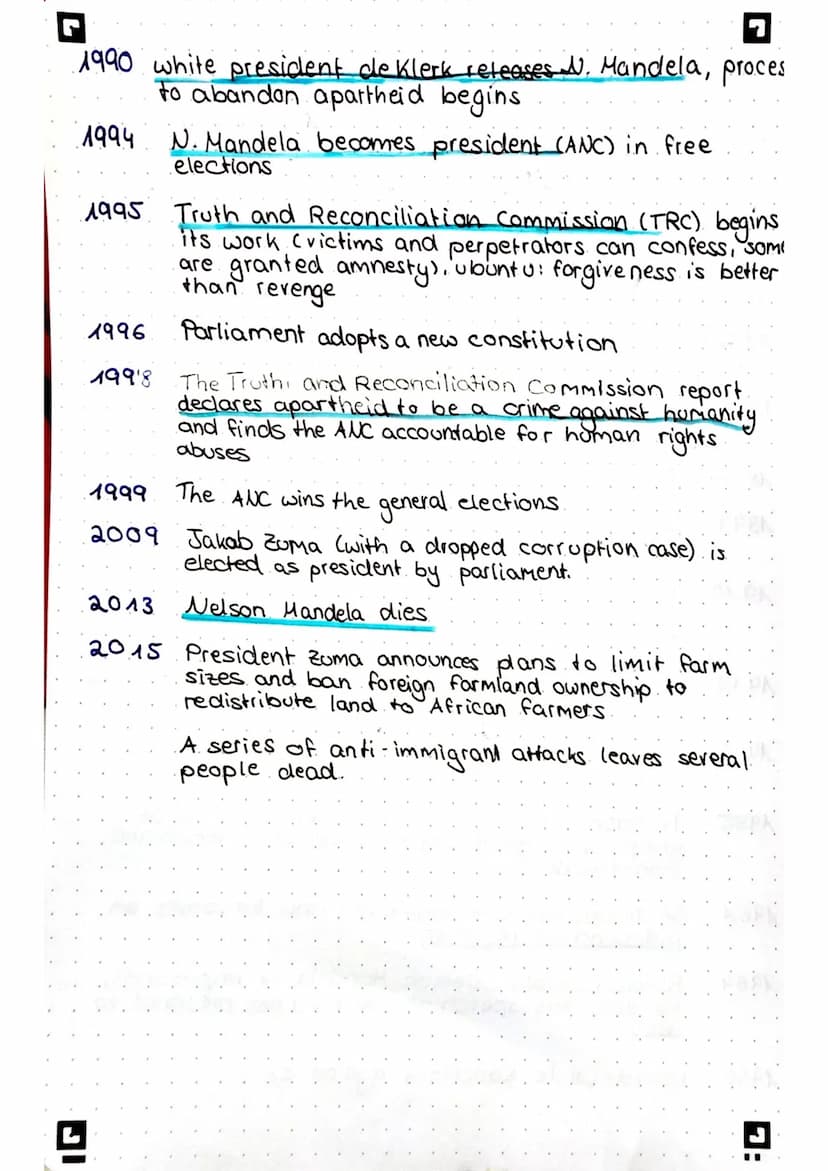 1990 white president de Klerk releases N. Mandela, proces
to abandon apartheid begins
1994 N. Mandela becomes president (ANC) in free
elections
1995 Truth and Reconciliation Commission (TRC) begins
its work (victims and perpetrators can confess, some
are granted amnesty), ubuntu: forgiveness is better
than revenge
1996 Parliament adopts a new constitution
1998 The Truth and Reconciliation Commission report
declares apartheid to be a crime against humanity
and finds the ANC accountable for human rights
abuses
1999 The ANC wins the general elections
2009 Jakob Zuma (with a dropped corruption case) is
elected as president by parliament.
2013 Nelson Mandela dies
2015 President Zuma announces plans to limit farm
sizes and ban foreign farmland ownership to
redistribute land to African farmers
A series of anti-immigrant attacks leaves several
people dead.